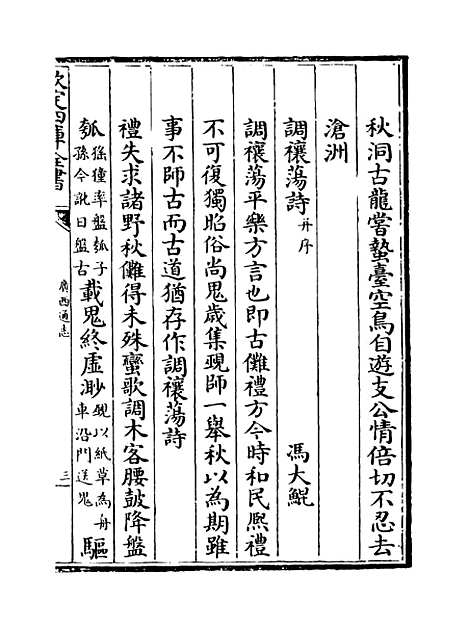 秋洞古龍嘗蟄臺空鳥自遊支公情倍切不忍去
滄洲
調禳蕩詩并序
馮大鯤
調禳蕩平樂方言也即古儺禮方今時和民熈禮
不可復獨昭俗尚鬼歲集覡師一舉秋以為期雖
事不師古而古道猶存作調禳蕩詩
禮失求諸野秋儺得未殊蠻歌調木客腰鼓降盤
瓠猺獞率盤瓠子孫今訛曰盤古載鬼終虚渺覡以紙草為舟車沿門送鬼驅
欽定四庫全書
廣西通志
三